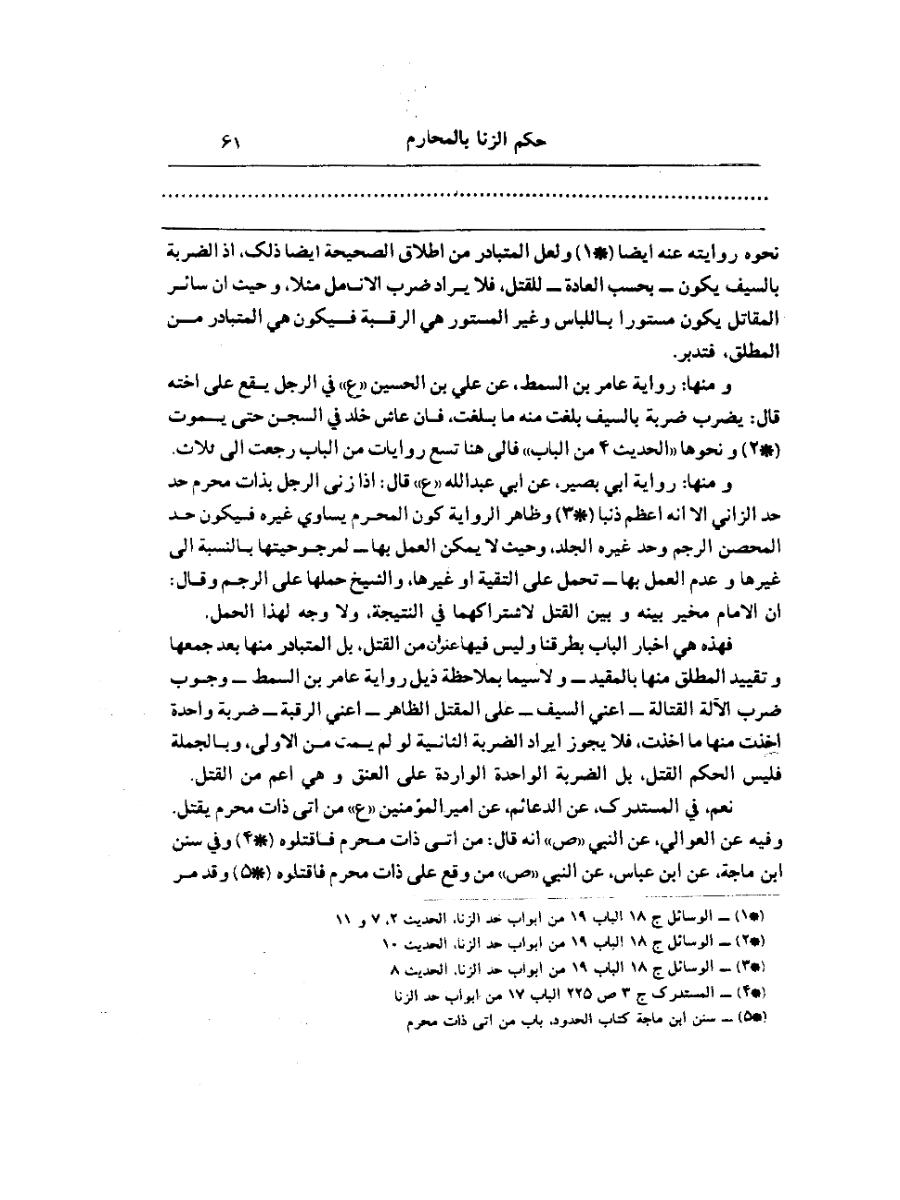 حكم الزنا بالمحارم ۶۱
نحوه روايته عنه ايضا (*۱) ولعل المتبادر من اطلاق الصحيحة ايضا ذلك، اذ الضربة
بالسيف يكون ــ بحسب العادة ــ للقتل، فلا يراد ضرب الانامل مثلا، و حيث ان سائر
المقاتل يكون مستورا باللباس وغير المستور هي الرقبة فيكون هي المتبادر من
المطلق، فتدبر.
و منها: رواية عامر بن السمط، عن علي بن الحسين «ع» في الرجل يقع على اخته
قال: يضرب ضربة بالسيف بلغت منه ما بلغت، فان عاش خلد في السجن حتى يموت
(*۲) و نحوها «الحديث ۴ من الباب» فالى هنا تسع روايات من الباب رجعت الى ثلاث.
و منها: رواية ابي بصير، عن ابي عبدالله «ع» قال: اذا زنى الرجل بذات محرم حد
حد الزاني الا انه اعظم ذنبا (*۳) وظاهر الرواية كون المحرم يساوي غيره فيكون حد
المحصن الرجم وحد غيره الجلد، وحيث لا يمكن العمل بها ــ لمرجوحيتها بالنسبة الى
غيرها و عدم العمل بها ــ تحمل على التقية او غيرها، والشيخ حملها على الرجم وقال:
ان الامام مخير بينه و بين القتل لاشتراكهما في النتيجة، ولا وجه لهذا الحمل.
فهذه هي اخبار الباب بطرقنا وليس فيها عنوان من القتل، بل المتبادر منها بعد جمعها
و تقييد المطلق منها بالمقيد ــ و لاسيما بملاحظة ذيل رواية عامر بن السمط ــ وجوب
ضرب الآلة القتالة ــ اعني السيف ــ على المقتل الظاهر ــ اعني الرقبة ــ ضربة واحدة
اخذت منها ما اخذت، فلا يجوز ايراد الضربة الثانية لو لم يمت من الاولى، وبالجملة
فليس الحكم القتل، بل الضربة الواحدة الواردة على العنق و هي اعم من القتل.
نعم، في المستدرك، عن الدعائم، عن اميرالمؤمنين «ع» من اتى ذات محرم يقتل.
وفيه عن العوالي، عن النبي «ص» انه قال: من اتى ذات محرم فاقتلوه (*۴) وفي سنن
ابن ماجة، عن ابن عباس، عن النبي «ص» من وقع على ذات محرم فاقتلوه (*۵) وقد مر
(*۱) ــ الوسائل ج ۱۸ الباب ۱۹ من ابواب حد الزنا، الحديث ۲، ۷ و ۱۱
(*۲) ــ الوسائل ج ۱۸ الباب ۱۹ من ابواب حد الزنا، الحديث ۱۰
(*۳) ــ الوسائل ج ۱۸ الباب ۱۹ من ابواب حد الزنا، الحديث ۸
(*۴) ــ المستدرك ج ۳ ص ۲۲۵ الباب ۱۷ من ابواب حد الزنا
(*۵) ــ سنن ابن ماجة كتاب الحدود، باب من اتى ذات محرم